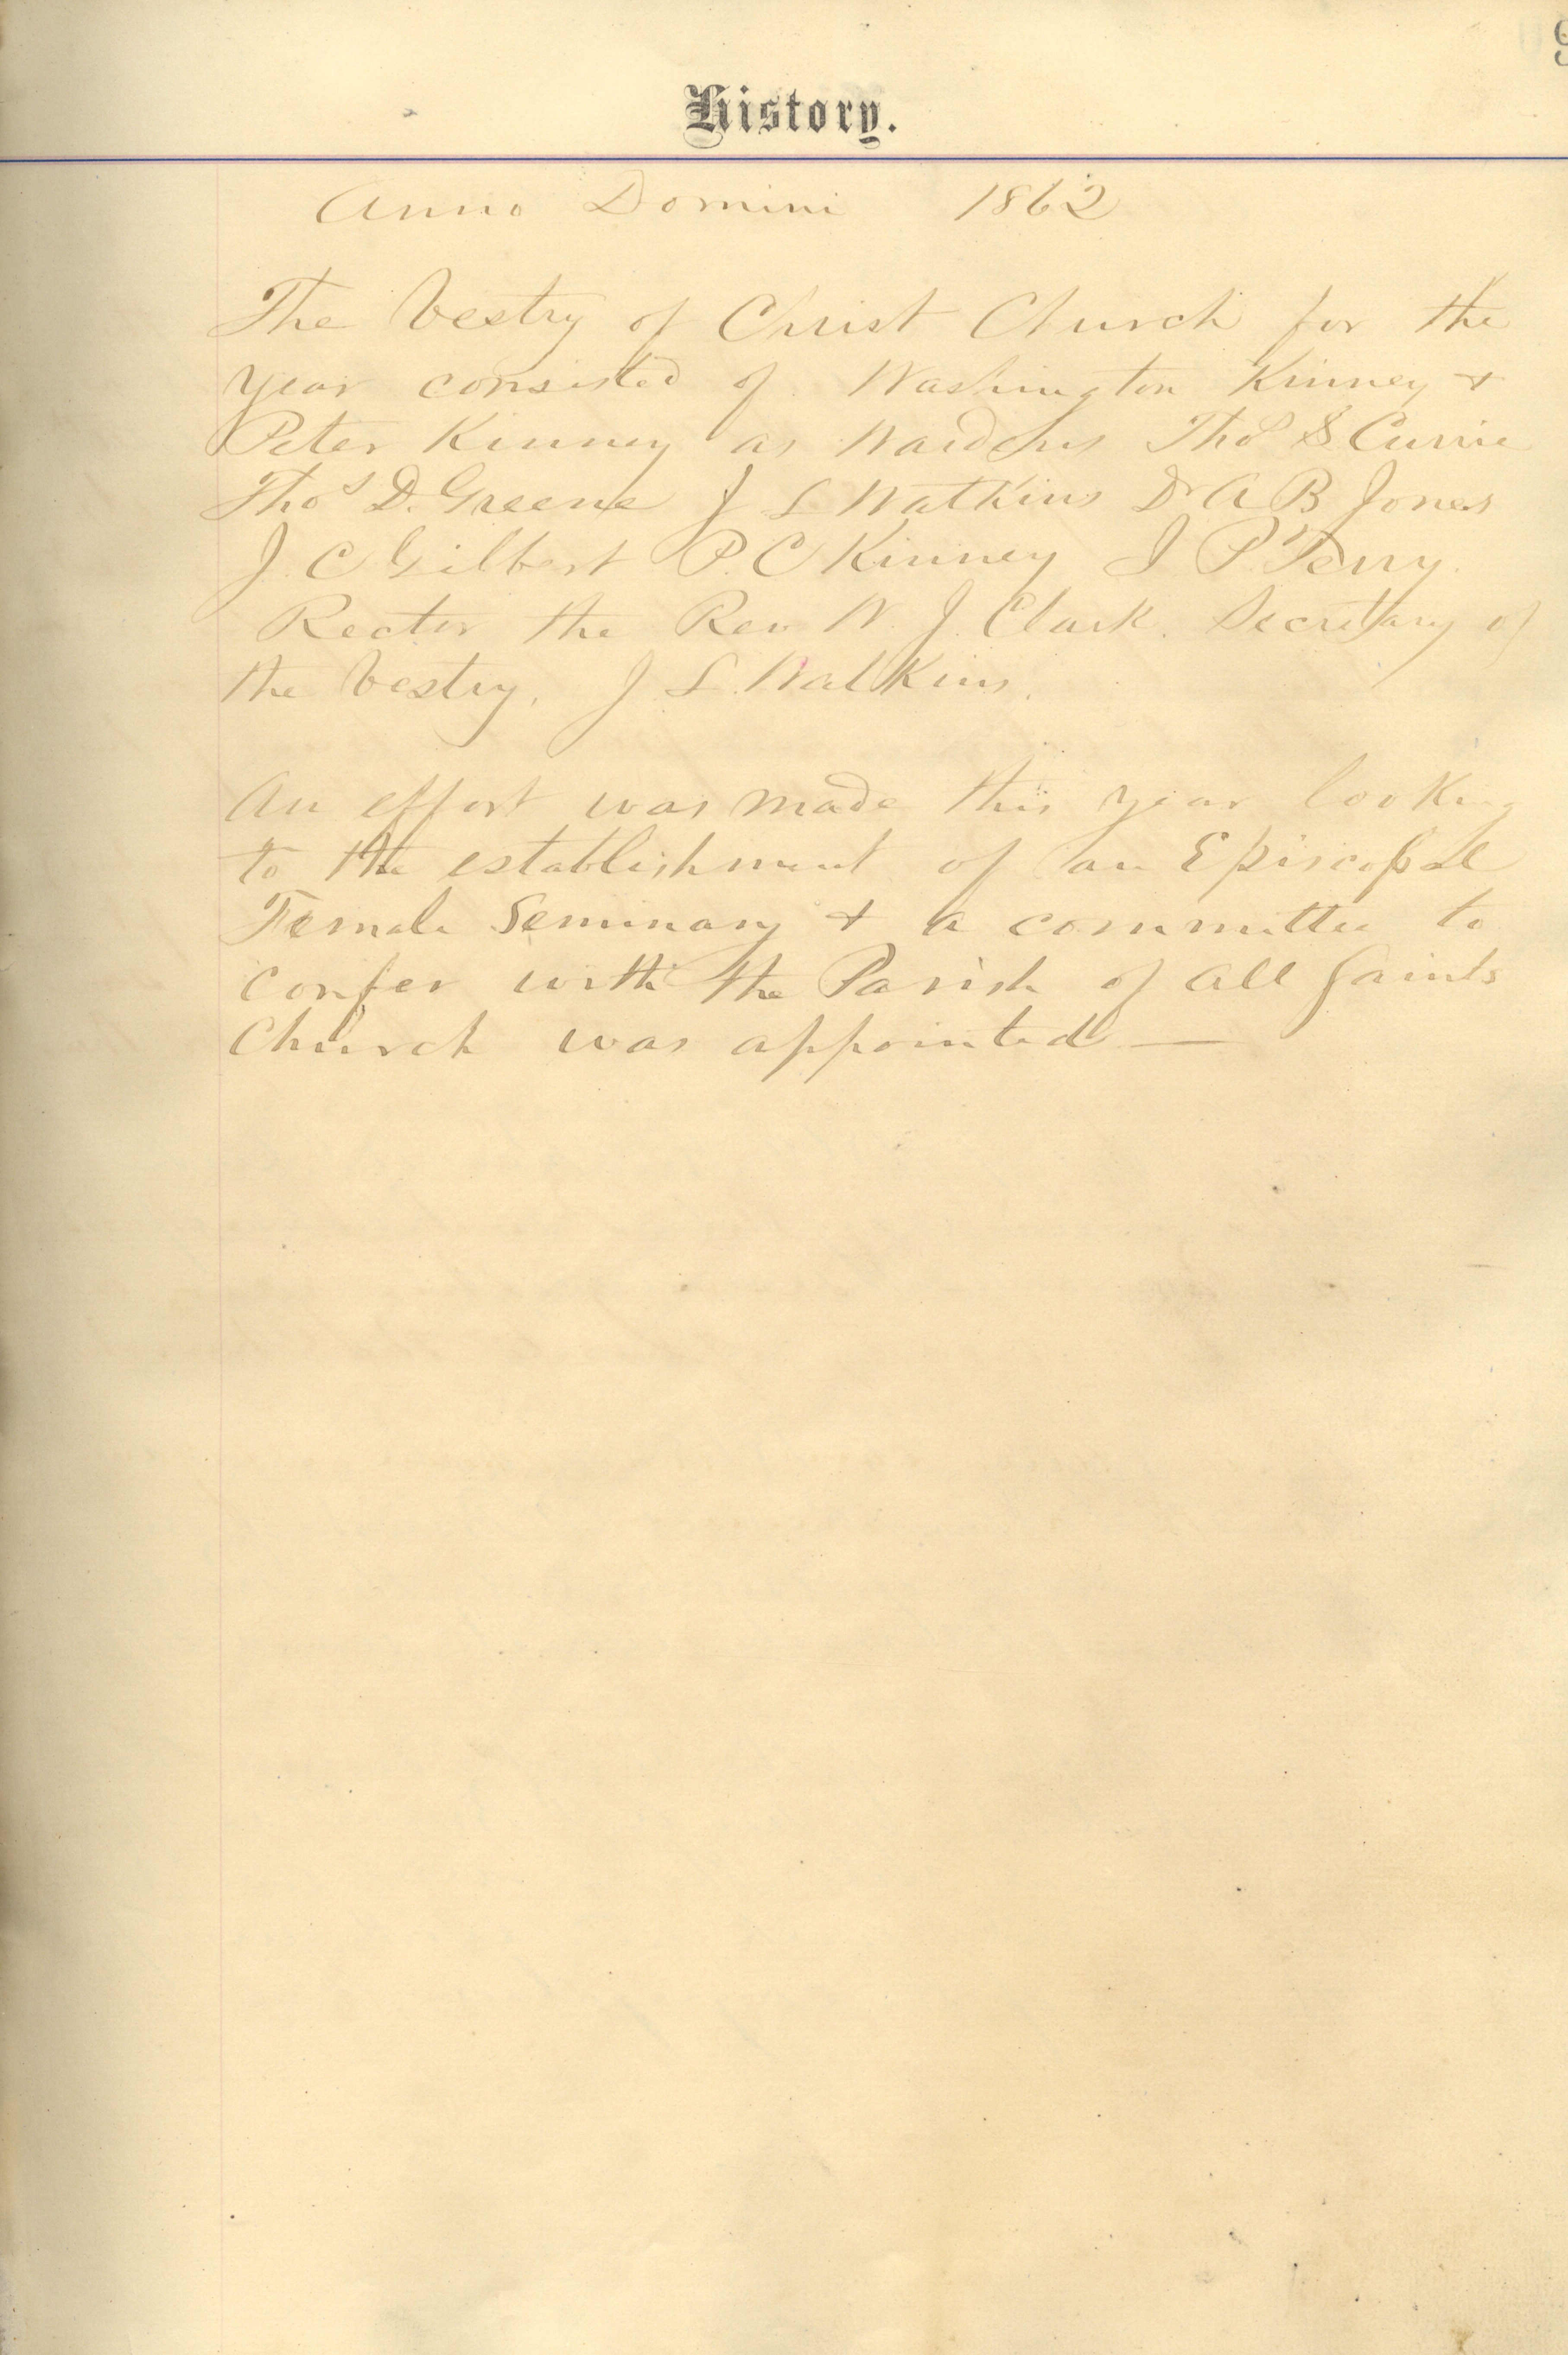 9
History.
Anno Domini 1862
The Vestry of Christ Church for the
year consisted of Washington Kinney &
Peter Kinney as Wardens Thos S Currie
Thos D. Greene J L Watkins Dr A B Jones
J. C Gilbert P. C Kinney J P. Terry.
Rector the Rev W. J. Clark. Secretary of
the Vestry. J L. Watkins.
An effort was made this year looking
to the establishment of an Episcopal
Female Seminary & a committee to
confer with the Parish of All Saints
Church was appointed —